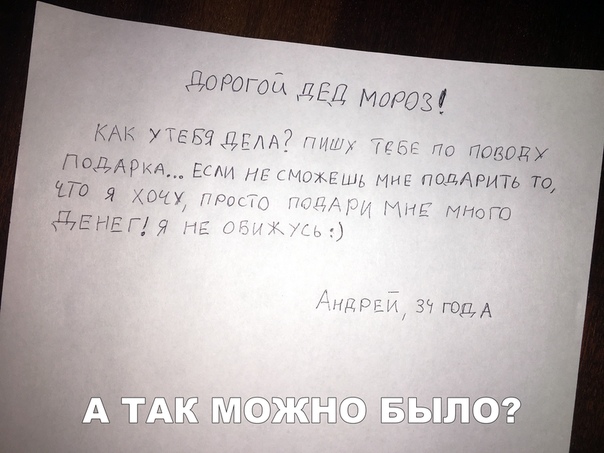 ДОРОГОЙ ДЕД МОРОЗ!
КАК У ТЕБЯ ДЕЛА? ПИШУ ТЕБЕ ПО ПОВОДУ
ПОДАРКА... ЕСЛИ НЕ СМОЖЕШЬ МНЕ ПОДАРИТЬ ТО,
ЧТО Я ХОЧУ, ПРОСТО ПОДАРИ МНЕ МНОГО
ДЕНЕГ! Я НЕ ОБИЖУСЬ :)
АНДРЕЙ, 34 ГОДА
А ТАК МОЖНО БЫЛО?